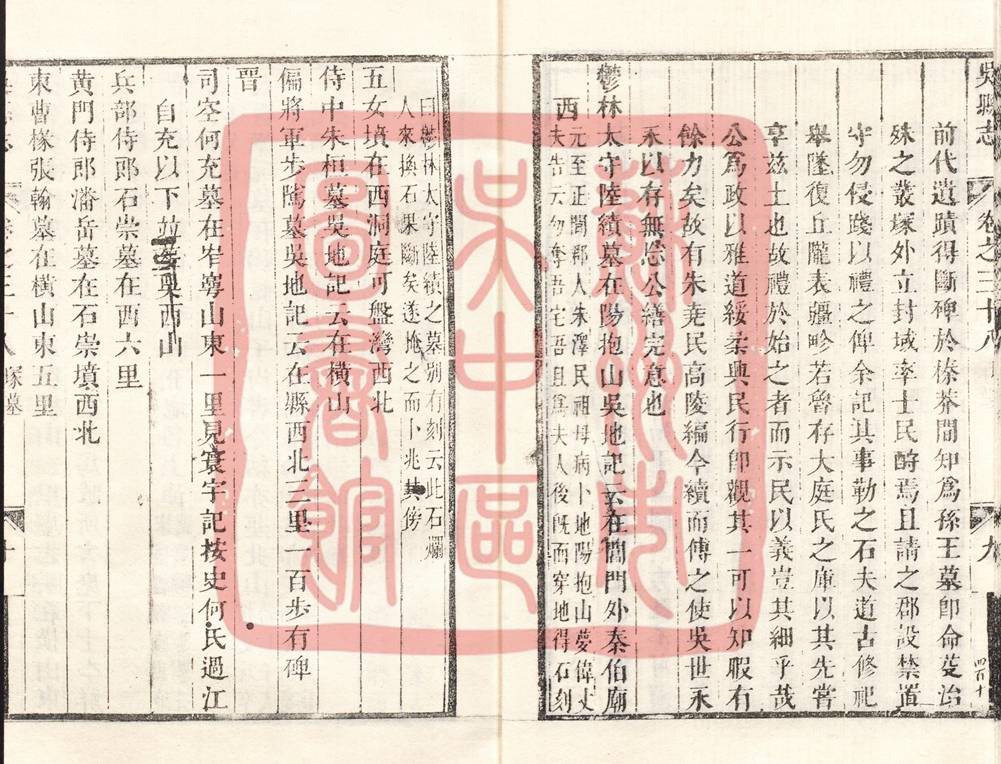 吳縣志
卷之三十八
九
四百十
前代遺蹟得斷碑於榛莽間知爲孫王墓卽命芟治
殊之叢塚外立封域率士民酹焉且請之郡設禁道
守勿侵踐以禮之俾余記其事勒之石夫道古修祀
舉墜復丘隴表疆畛若魯存大庭氏之庫以其先嘗
享兹土也故禮於始之者而示民以義豈其細乎哉
公爲政以雅道綏柔興民行卽觀其一可以知暇有
餘力矣故有朱堯民高陵編今續而傅之使吳世永
永以存無恙公繕完意也
鬱林太守陸績墓在陽抱山吳地記云在閶門外泰伯廟
西
元至正間郡人朱澤民祖母病卜地陽抱山夢偉丈
夫告云勿奪吾宅吾且爲夫人後旣而穿地得石刻
曰鬱林太守陸績之墓别有刻云此石爛
人來換石果斷矣遂掩之而卜兆其傍
五女墳在西洞庭可盤灣西北
侍中朱桓墓吳地記云在橫山
偏將軍步隲墓吳地記云在縣西北三里一百步有碑
晉
司空何充墓在岝崿山東一里見寰宇記按史何氏過江
自充以下並葬吳西山
兵部侍郎石崇墓在西六里
黄門侍郎潘岳墓在石崇墳西北
東曹椽張翰墓在橫山東五里
卷之三十八
冢墓
十
蘇州市
吳中區
圖書館